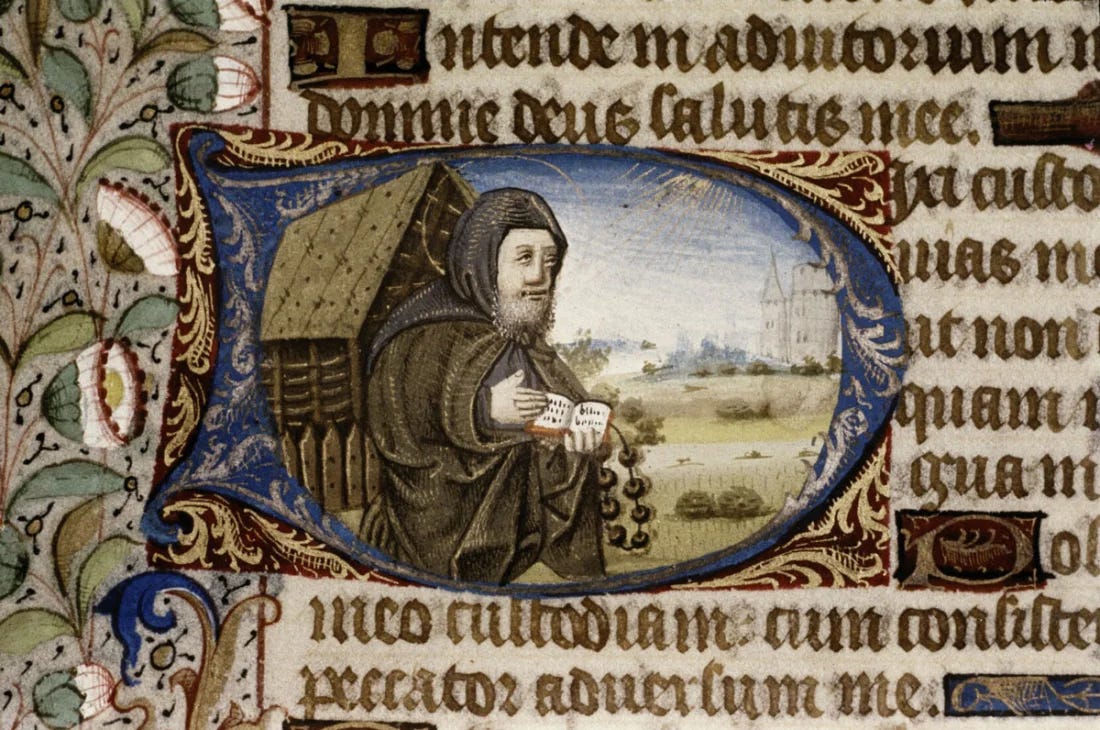 Intende in adiutorium m
domine deus salutis mee.
Dixi custo
uias me
ut non
quam
gua m
Pos
meo custodiam: cum consiste
peccator aduersum me.